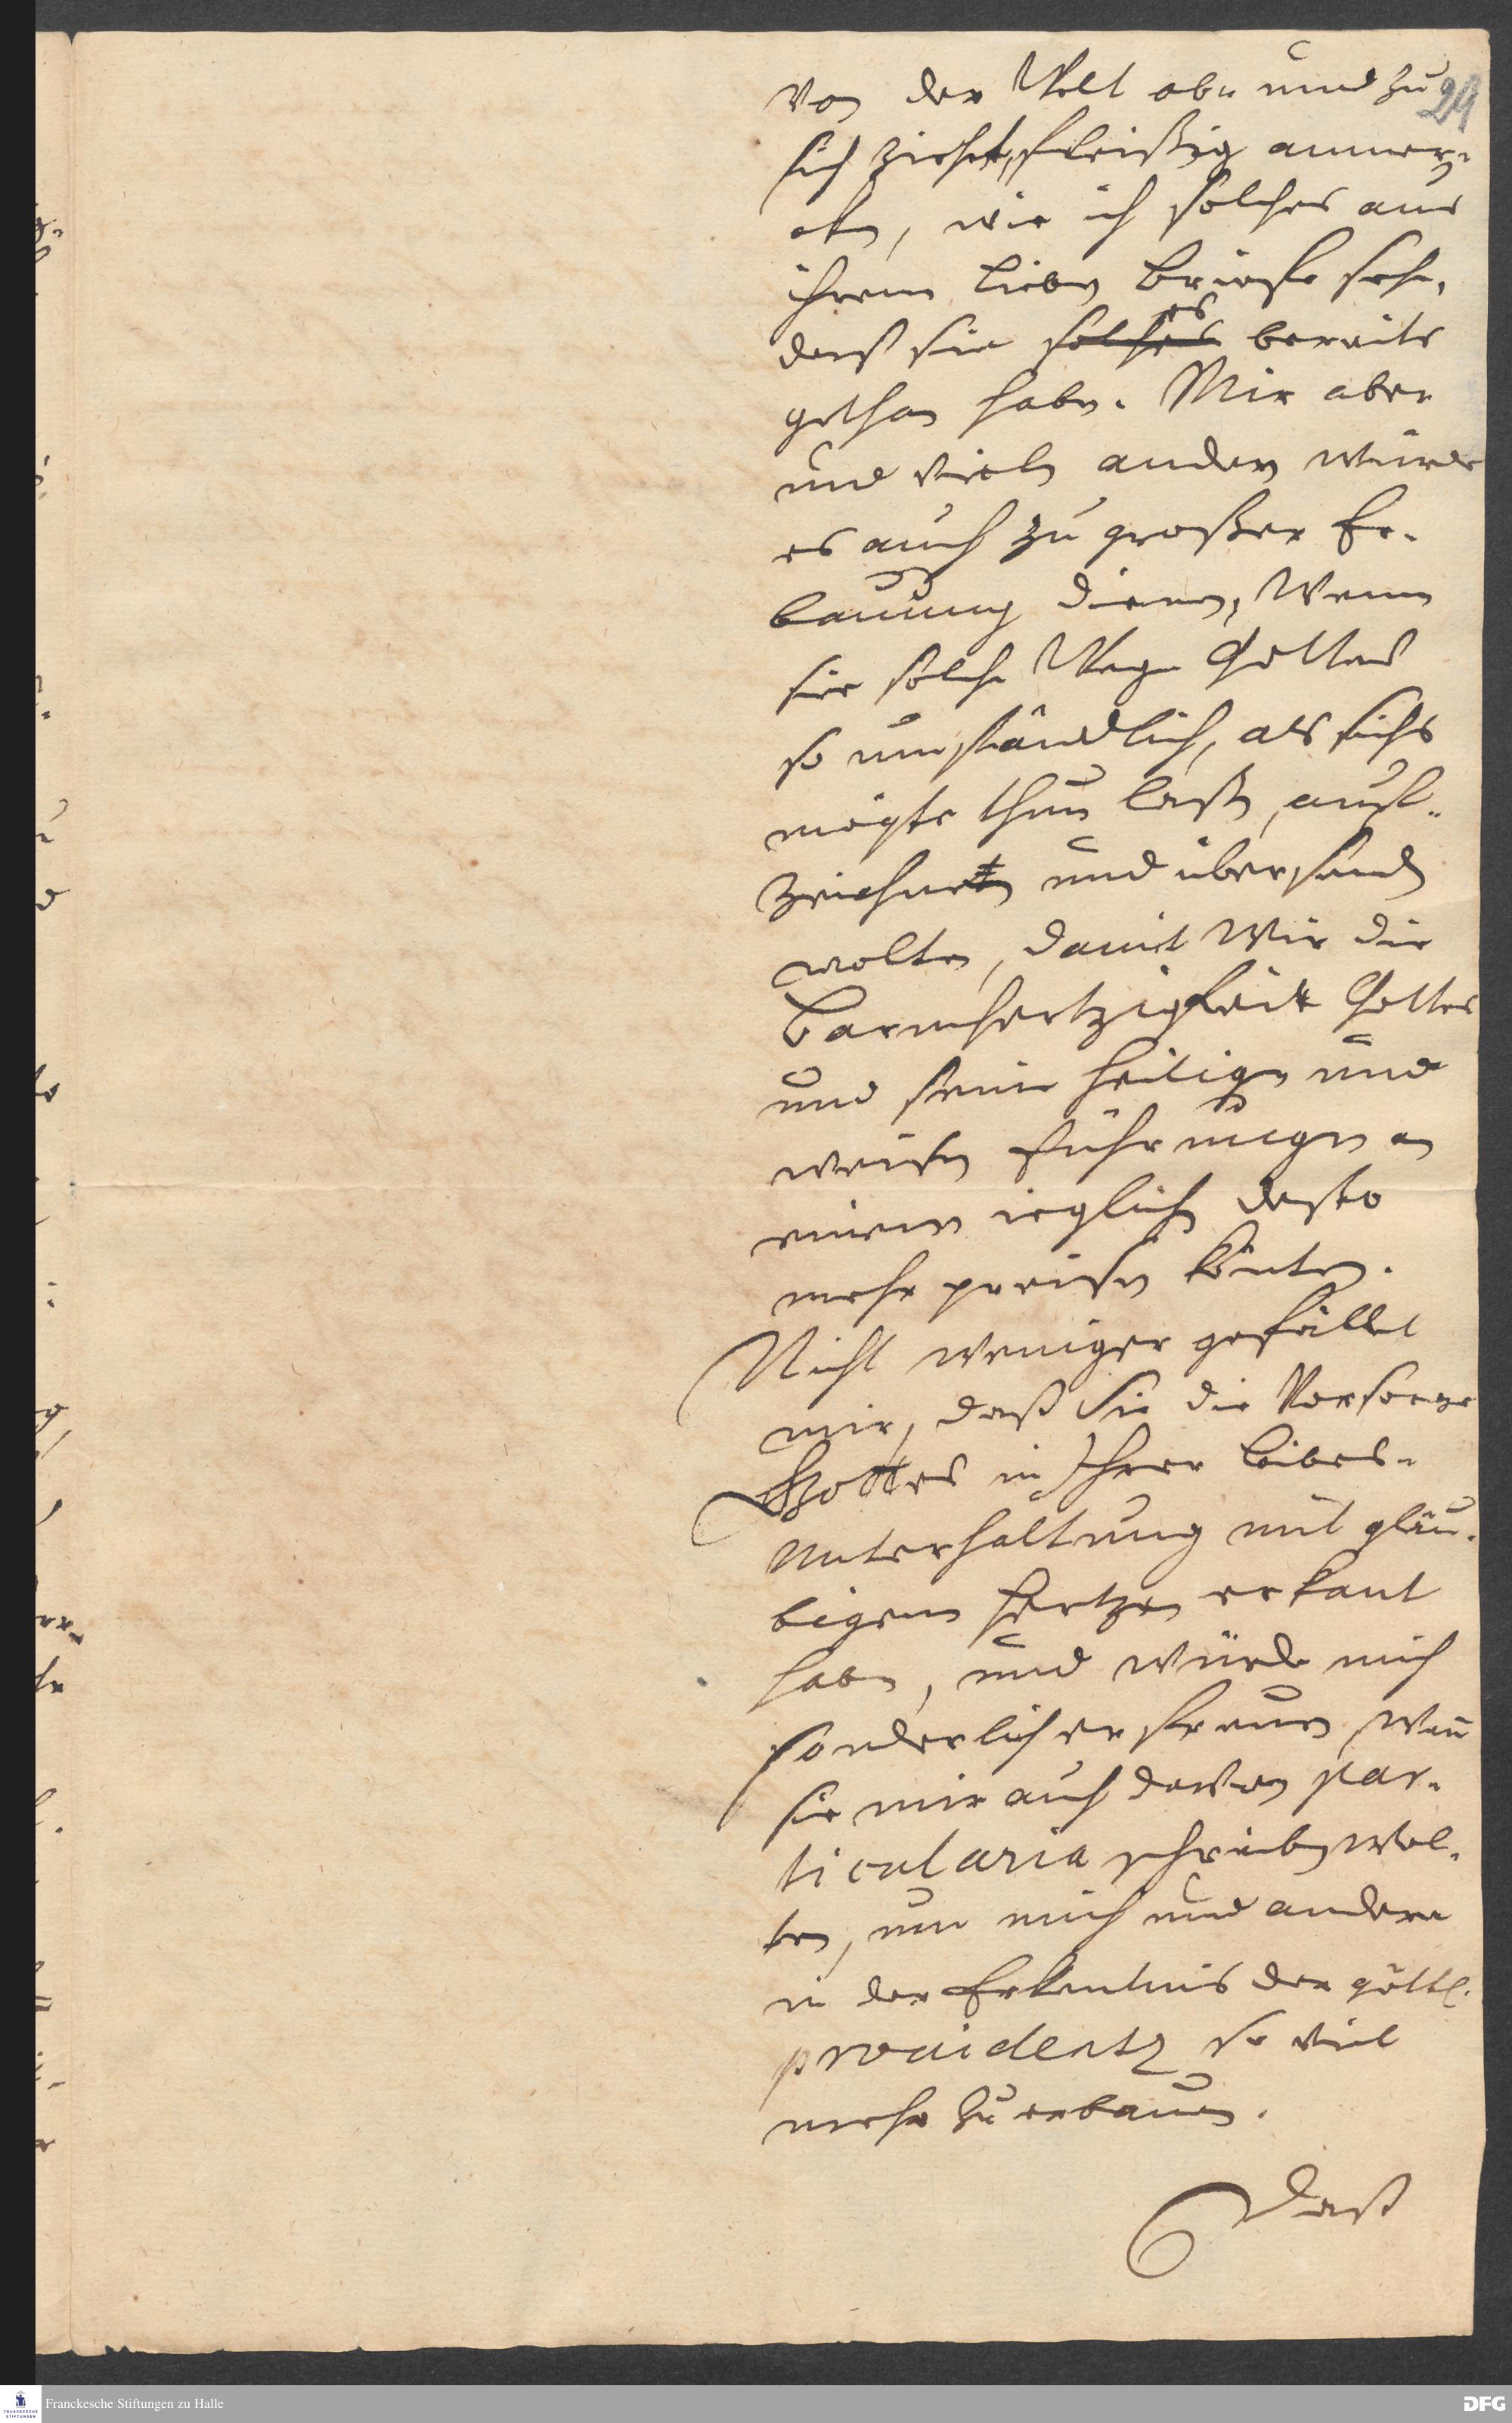 von der Welt ab- und zu
29
sich ziehet, fleißig anmer-
cken, wie ich solches aus
ihrem lieben Briefe sehe,
daß sie solches es bereits
gethan haben. Mir aber
und vielen andern würde
es auch zu großer Er-
bauung dienen, Wenn
sie solche Wege Gottes
so umständlich, als sichs
mögte thun laßen, auf-
zeichnen und übersenden
wolten, damit Wir die
Barmhertzigkeit Gottes
und seine heiligen und
weisen führungen an
einem ieglichen desto
mehr preisen könten.
Nicht weniger gefället
mir, daß Sie die Vorsorge
Gottes in Ihrer leibes-
Unterhaltung mit gläu-
bigem Hertzen erkant
haben, und würde mich
sonderlich erfreuen, Wenn
sie mir auch davon par-
ticularia schreiben wol-
ten, um mich und andere
in der Erkentnis der göttl.
providentz so viel
mehr zu erbauen.
Daß
Franckesche Stiftungen zu Halle
DFG